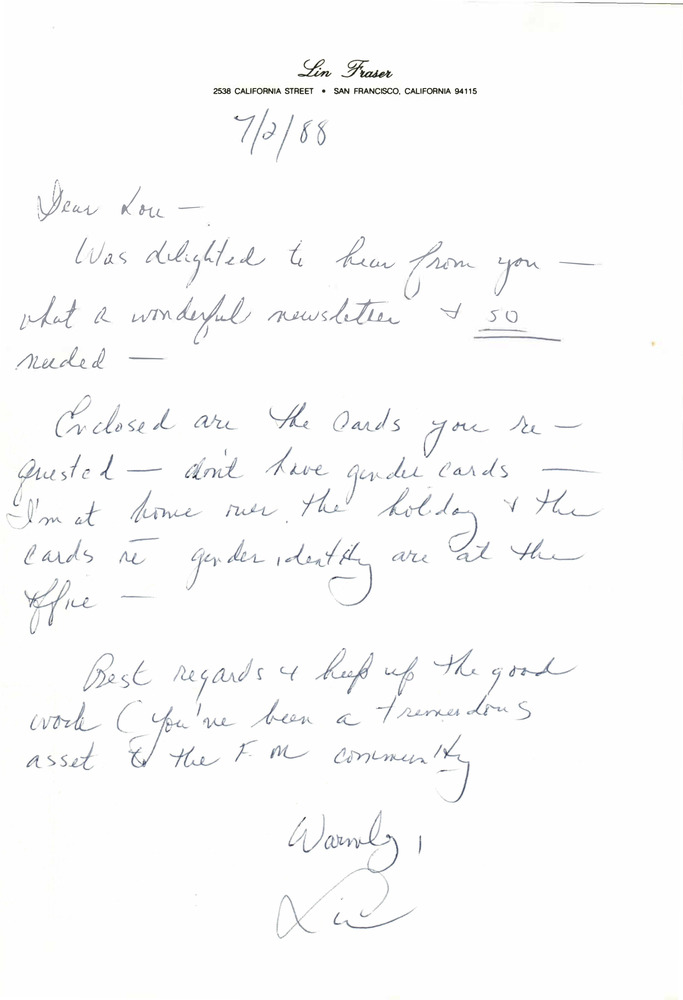 Lin Fraser
2538 CALIFORNIA STREET • SAN FRANCISCO, CALIFORNIA 94115
7/2/88
Dear Lou —
Was delighted to hear from you —
what a wonderful newsletter & so
needed —
Enclosed are the cards you re-
quested — don't have gender cards —
I'm at home over the holiday & the
cards re gender identity are at the
office —
Best regards & keep up the good
work (you've been a tremendous
asset to the F-M community
Warmly,
Lin